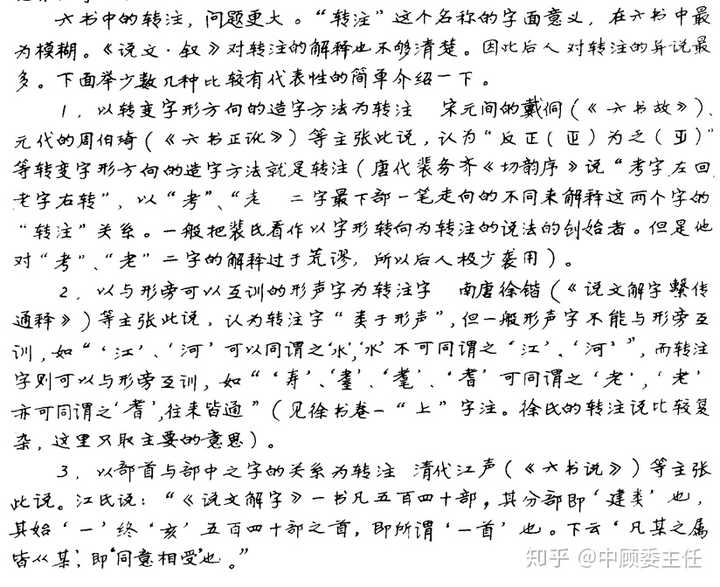 六书中的转注，问题更大。“转注”这个名称的字面意义，在六书中最
为模糊。《说文·叙》对转注的解释也不够清楚。因此后人对转注的异说最
多。下面举少数几种比较有代表性的简单介绍一下。
1，以转变字形方向的造字方法为转注 宋元间的戴侗（《六书故》）、
元代的周伯琦（《六书正讹》）等主张此说，认为“反正（正）为之（）”
等转变字形方向的造字方法就是转注（唐代裴务齐《切韵序》说“考字左回
老字右转”，以“考”、“老 二字最下部一笔走向的不同来解释这两个字的
“转注”关系。一般把裴氏看作以字形转向为转注的说法的创始者。但是他
对“考”、“老”二字的解释过于荒谬，所以后人极少袭用）。
2，以与形旁可以互训的形声字为转注字 南唐徐锴（《说文解字繫传
通释》）等主张此说，认为转注字“类于形声”，但一般形声字不能与形旁互
训，如“‘江’、‘河’可以同谓之‘水’，‘水’不可同谓之‘江’、‘河’”，而转注
字则可以与形旁互训，如“‘寿’、‘耋’、‘耄’、‘耆’可同谓之‘老’，‘老’
亦可同谓之‘耆’，往来皆通”（见徐书卷一“上”字注。徐氏的转注说比较复
杂，这里只取主要的意思）。
3，以部首与部中之字的关系为转注 清代江声（《六书说》）等主张
此说。江氏说：“《说文解字》一书凡五百四十部，其分部即‘建类’也，
其始‘一’终‘亥’五百四十部之首，即所谓‘一首’也。下云‘凡某之属
皆从某’，即‘同意相受’也。”
知乎 @中顾委主任